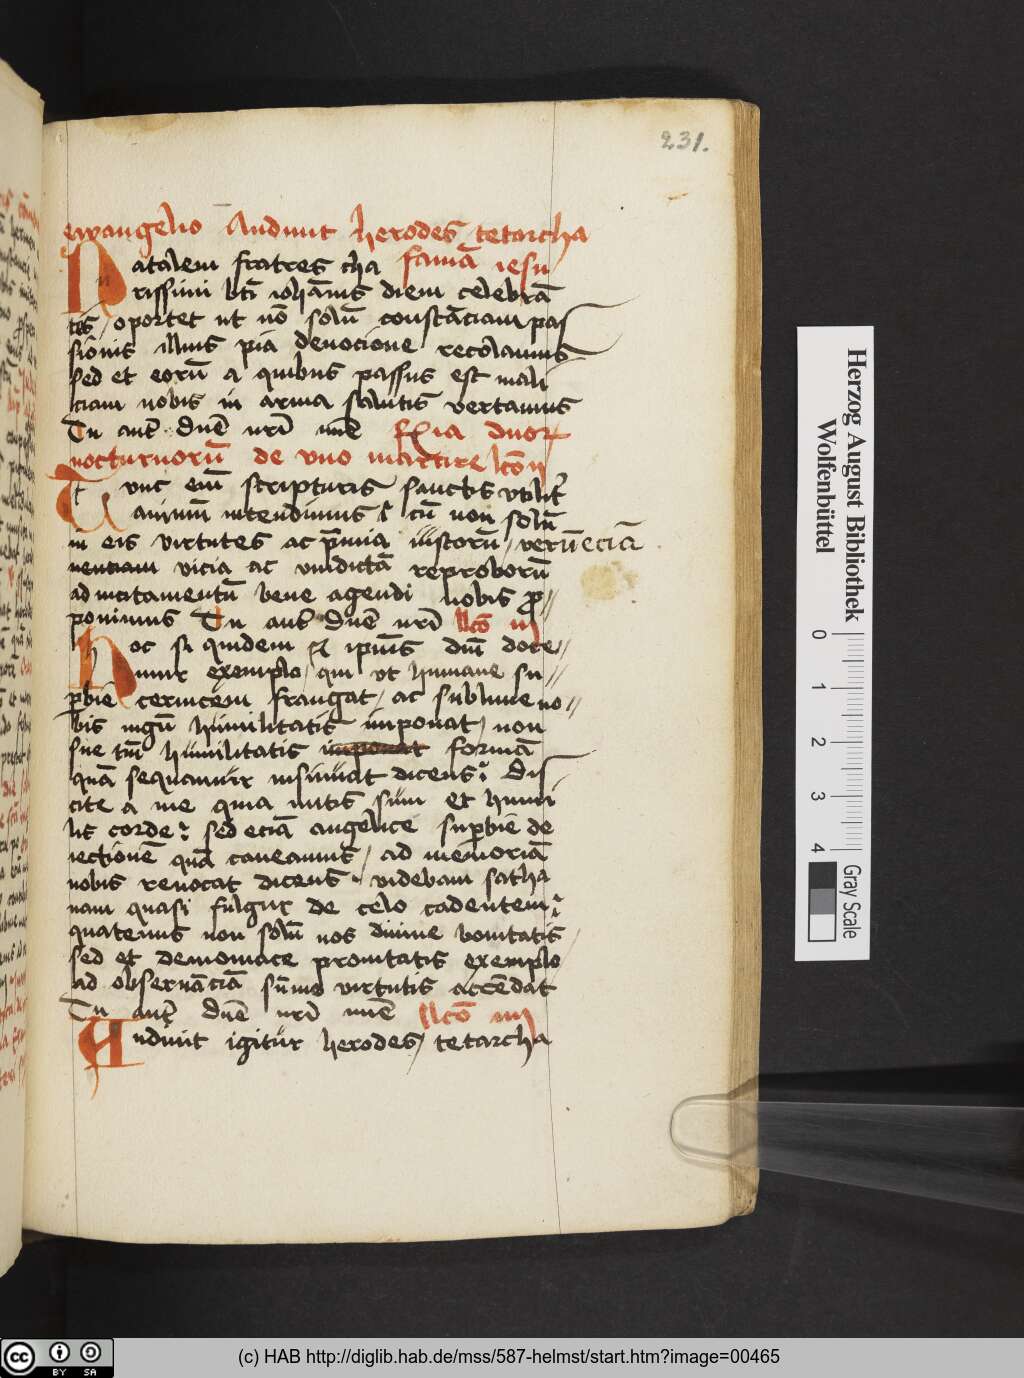 231.
ewangelio Audiuit herodes tetarcha
Natalem fratres cha famā iesu
rissimi bti iohānis diem celebrā
tes / oportet ut nō solū constāciam pas
sionis illius pia deuocione recolamus
sed et eorū a quibus passus est mali
ciam nobis in arma salutis vertamus
Tu aut dnē nrī duor
nocturnorū de vno martire lcō ij
Tunc eni scripturis sanctis vtilit
animum intendimus cū non solū
in eis virtutes ac pmia iustorū / verū eciā
nenciam vicia ac vindictā reproborū
ad incitamentū bene agendi nobis pro
ponimus Tu aut dnē nrī lcō iij
hoc si quidem ipius dni doce
mur exemplo / qui vt humane su
pbie ceruicem frangat / ac sublime no
bis iugū humilitatis imponat / non
sue tm humilitatis imponat formā
quā sequamur insinuat dicens Dis
cite a me quia mitis sum et humi
lis corde sed eciā angelice supbie de
iectionē quā caueamus / ad memoriā
nobis reuocat dicens videbam satha
nam quasi fulgur de celo cadentem
quatenus non solū nos diuine bonitatis
sed et demoniace prauitatis exemplo
ad obseruāciā sūme virtutis accēdat
Tu aut dnē nrī lcō iiij
Audiuit igitur herodes / tetarcha
Herzog August Bibliothek
Wolfenbüttel
0 1 2 3 4
Gray Scale
cc BY SA
(c) HAB http://diglib.hab.de/mss/587-helmst/start.htm?image=00465